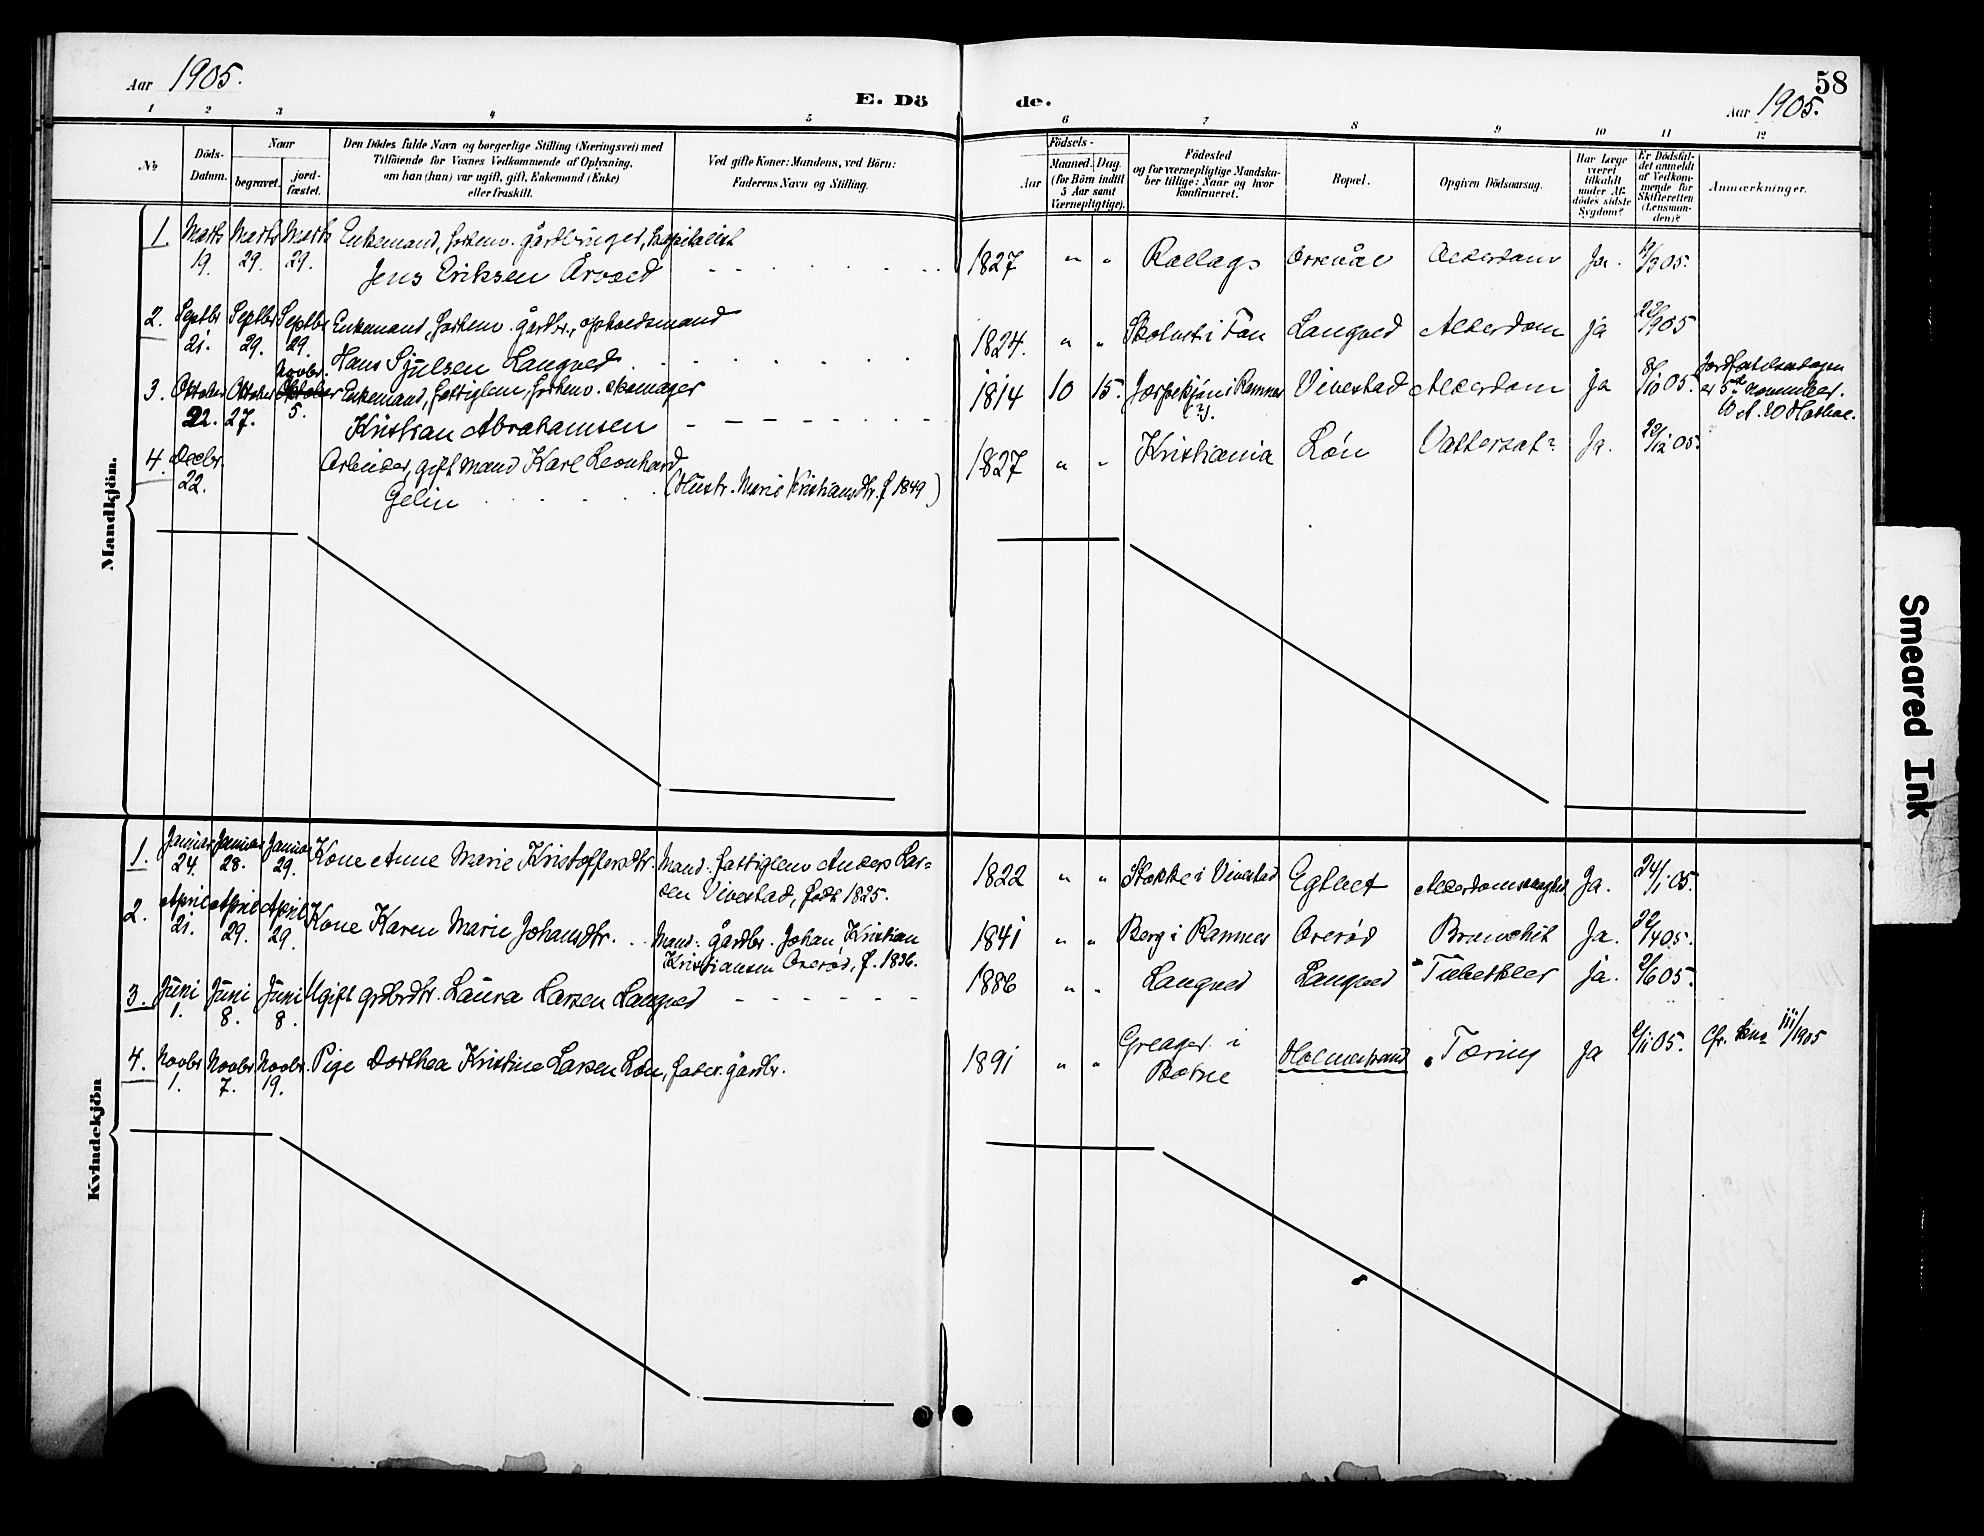 Aar 1905.
E. Dö
de.
58
Aar 1905.
1 2 3 4 5 6 7 8 9 10 11 12
№
Döds-Datum.
Naar
begravet.
jord-fæstet.
Den Dödes fulde Navn og borgerlige Stilling (Næringsvei) med
Tilföiende for Voxnes Vedkommende af Oplysning,
om han (hun) var ugift, gift, Enkemand (Enke)
eller fraskilt.
Ved gifte Koner: Mandens, ved Börn:
Faderens Navn og Stilling.
Födsels-
Aar
Maaned. Dag.
(for Börn indtil
5 Aar samt
Værnepligtige).
Födested
og for værnepligtige Mandska-
ber tillige: Naar og hvor
konfirmeret.
Bopæl.
Opgiven Dödsaarsag.
Har Læge
været
tilkaldt
under Af-
dödes sidste
Sygdom?
Er Dödsfal-
det anmeldt
af Vedkom-
mende for
Skifteretten
(Lensman-
den)?
Anmærkninger.
Mandkjön.
1. Marts 19. Marts 29. Marts 29. Enkemand, forhenv. gårdbruger, kapitalist
Jens Eriksen Årvold
1827 " " Rollags Alderdom Ja.
2. Septbr 21. Septbr 29. Septbr 29. Enkemand, forhenv. gårdbr., opholdsmand
Hans Sjulsen Langved
1824. " " Langved Alderdom ja 22/9 05
3. Oktober 22. Oktober 27. Novbr. Oktober 5. Enkemand, fattiglem, forhenv.
Kristian Abrahamsen
1814 10 15. i Ramnes (?). Vivestad Alderdom ja
Jordfæstelsesdagen
er 5te November.
4. Decbr. 22. Arbeider, gift mand Karl Leonhard
Gelin (Hustr. Marie Kristiansdtr. f. 1849)
1827 " " Kristiania Lön Vattersot? Ja. 29/12 05.
Kvindekjön
1. Januar 24. Januar 28. Januar 29. Kone Anne Marie Kristoffersdtr. Mand: fattiglem Anders Lar-
sen Vivestad, född 1825.
1822 " " Stokke i Vivestad Ja. 24/1 05.
2. April 21. April 29. April 29. Kone Karen Marie Johansdtr. Mand: gårdbr. Johan Kristian
Kristiansen Orerød, f. 1836.
1841 " " Berg i Ramnes Orerød Bronchit Ja. 22/4 05.
3. Juni 1. Juni 8. Juni 8. Ugift grdbrdtr. Laura Larsen Langved
1886 " " Langved Langved Tuberkler Ja. 2/6 05.
4. Novbr 1. Novbr 7. Novbr. 19. Pige Dorthea Kristine Larsen Lön, fader: gårdbr.
1891 " " Greager i
Botne Holmestrand Tæring ja 6/11 05.
Smeared Ink